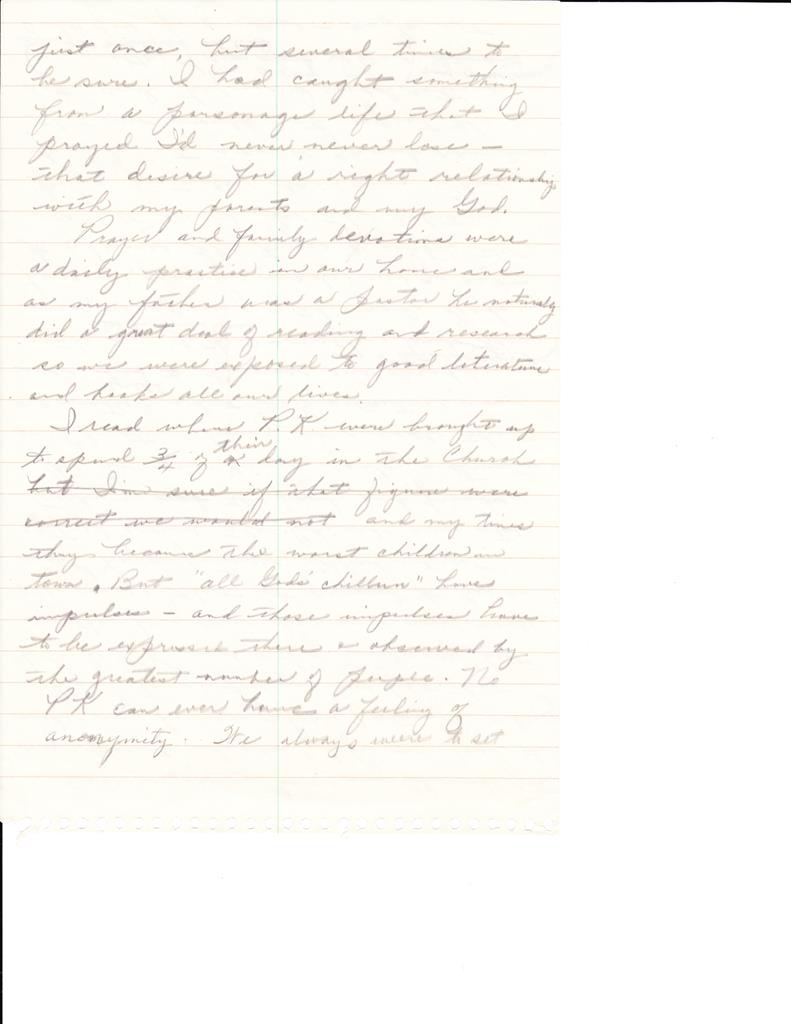 just once, but several times to
be sure. I had caught something
from a parsonage life that I
prayed I'd never never lose –
that desire for a right relationship
with my parents and my God.
Prayer and family devotions were
a daily practice in our home and
as my father was a pastor he naturally
did a great deal of reading and research
so we were exposed to good literature
and books all our lives.
I read where P.K. were brought up
to spend 3/4 of their day in the Church
but I'm sure if that figure were
correct we would not and my times
they became the worst children in
town. But "all God's chillun" have
impulses – and those impulses have
to be expressed there & observed by
the greatest number of people. No
PK can ever have a feeling of
anonymity. We always were to set